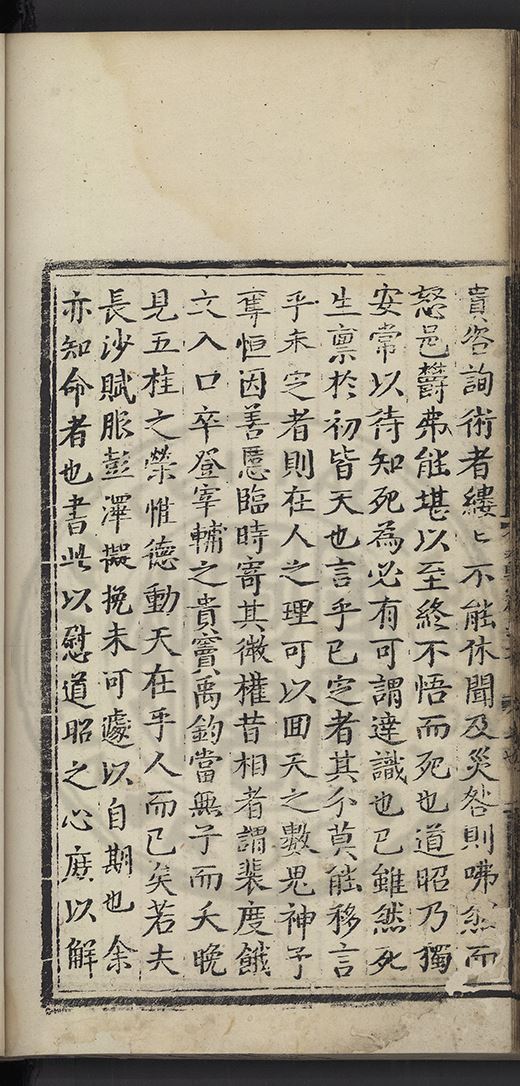 貴咨詢術者縷〻不能休聞及災咎則咈然而
怒邑欝弗能堪以至終不悟而死也道昭乃獨
安常以待知死為必有可謂達識也已雖然死
生禀於初皆天也言乎已定者其分莫能移言
乎未定者則在人之理可以囬天之數鬼神予
奪恒因善慝臨時寄其微權昔相者謂裴度餓
文入口卒登宰輔之貴竇禹鈞當無子而夭晚
見五桂之榮惟德動天在乎人而已矣若夫
長沙賦服彭澤擬挽未可遽以自期也余
亦知命者也書此以慰道昭之心庶以解